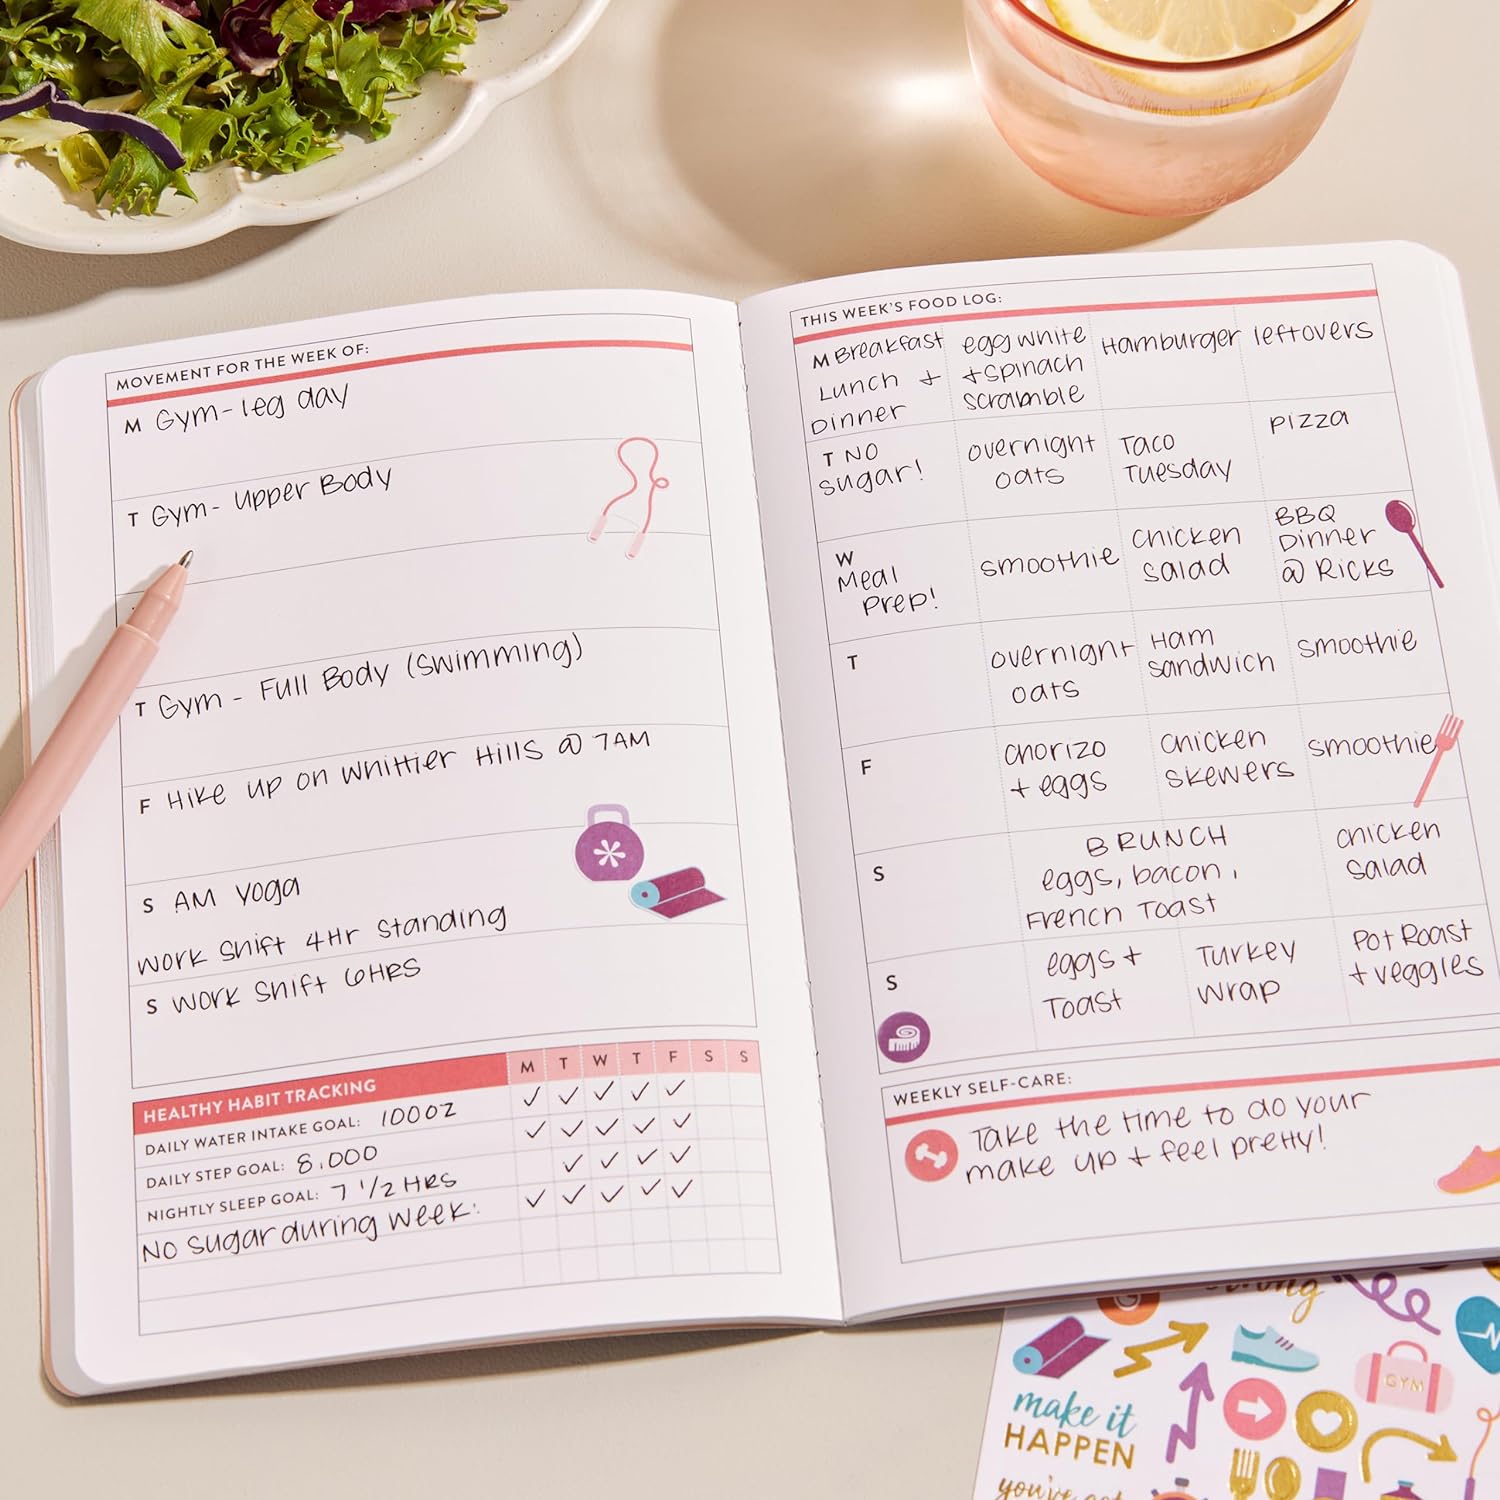 MOVEMENT FOR THE WEEK OF:
M Gym- leg day
T Gym- Upper Body
T Gym - Full Body (swimming)
F Hike up on Whittier Hills @ 7AM
S AM Yoga
Work Shift 4Hr Standing
S Work Shift 6HRS
HEALTHY HABIT TRACKING M T W T F S S
DAILY WATER INTAKE GOAL: 100OZ ✓ ✓ ✓ ✓ ✓
DAILY STEP GOAL: 8,000 ✓ ✓ ✓ ✓ ✓
NIGHTLY SLEEP GOAL: 7 1/2 HRS ✓ ✓ ✓ ✓
No Sugar during Week: ✓ ✓ ✓ ✓ ✓
THIS WEEK'S FOOD LOG:
M Breakfast
Lunch +
Dinner
egg white
+ spinach
scramble
Hamburger
leftovers
T NO
sugar!
overnight
oats
Taco
Tuesday
pizza
W
Meal
Prep!
smoothie
Chicken
salad
BBQ
Dinner
@ Ricks
T
overnight
oats
Ham
sandwich
smoothie
F
Chorizo
+ eggs
Chicken
Skewers
smoothie
S
BRUNCH
eggs, bacon,
French Toast
chicken
salad
S
eggs +
Toast
Turkey
wrap
Pot Roast
+ veggies
WEEKLY SELF-CARE:
Take the time to do your
make up + feel pretty!
strong
GYM
make it
HAPPEN
you've got